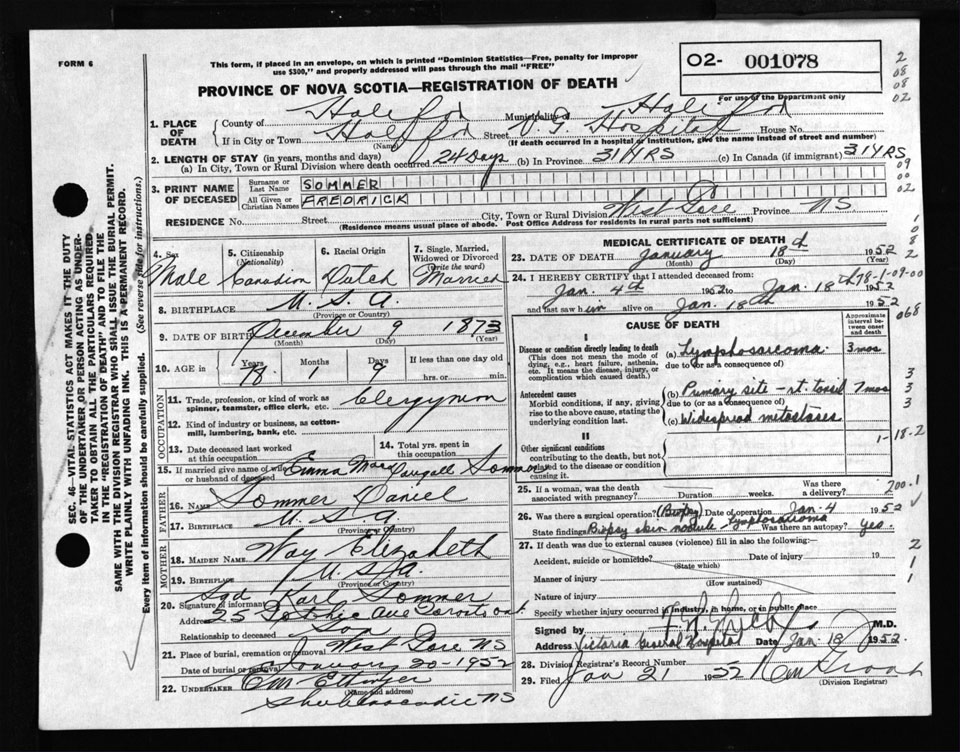 FORM 6
This form, if placed in an envelope, on which is printed "Dominion Statistics—Free, penalty for improper
use $300," and properly addressed will pass through the mail "FREE"
PROVINCE OF NOVA SCOTIA—REGISTRATION OF DEATH
02- 001078
For use of the Department only
2
08
08
02
1. PLACE OF DEATH
County of Halifax Municipality of Halifax
If in City or Town Halifax Street V. G. Hospital House No.
(Name) (If death occurred in a hospital or institution, give the name instead of street and number)
2. LENGTH OF STAY (in years, months and days)
(a) In City, Town or Rural Division where death occurred 24 Days (b) In Province 31 YRS (c) In Canada (if immigrant) 31 YRS
09
00
02
3. PRINT NAME OF DECEASED
Surname or Last Name SOMMER
All Given or Christian Names FREDRICK
RESIDENCE No. Street City, Town or Rural Division West Gore Province NS
(Residence means usual place of abode. Post Office Address for residents in rural parts not sufficient)
4. Sex Male
5. Citizenship (Nationality) Canadian
6. Racial Origin Dutch
7. Single, Married, Widowed or Divorced (Write the word) Married
8. BIRTHPLACE U. S. A.
(Province or Country)
9. DATE OF BIRTH December 9 1873
(Month) (Day) (Year)
10. AGE in Years Months Days If less than one day old
78 1 9 hrs. or min.
OCCUPATION
11. Trade, profession, or kind of work as spinner, teamster, office clerk, etc. Clergyman
12. Kind of industry or business, as cotton-mill, lumbering, bank, etc.
13. Date deceased last worked at this occupation
14. Total yrs. spent in this occupation
15. If married give name of wife or husband of deceased Emma Mary Dougall Sommer
FATHER
16. NAME Sommer Daniel
17. BIRTHPLACE U. S. A.
(Province or Country)
MOTHER
18. MAIDEN NAME Way Elizabeth
19. BIRTHPLACE U. S. A.
(Province or Country)
20. Signature of informant Sgd Karl Sommer
Address 25 Ave Toronto Ont
Relationship to deceased Son
21. Place of burial, cremation or removal West Gore NS
Date of burial or removal January 20-1952
22. UNDERTAKER Em Ettinger
(Name and address)
Shubenacadie NS
MEDICAL CERTIFICATE OF DEATH
23. DATE OF DEATH January 18 1952
(Month) (Day) (Year)
24. I HEREBY CERTIFY that I attended deceased from:
Jan. 4th 1952 to Jan. 18th
178-1-09-00
and last saw him alive on Jan. 18th 1952
068
CAUSE OF DEATH
Approximate interval between onset and death
I
Disease or condition directly leading to death
(This does not mean the mode of dying, e.g., heart failure, asthenia, etc. It means the disease, injury, or complication which caused death.)
(a) Lymphosarcoma 3 mos
due to (or as a consequence of)
Antecedent causes
Morbid conditions, if any, giving rise to the above cause, stating the underlying condition last.
(b) Primary site - rt. tonsil 7 mos
due to (or as a consequence of)
(c) Widespread metastases
3
3
3
II
Other significant conditions
contributing to the death, but not related to the disease or condition causing it.
1-18-2
25. If a woman, was the death associated with pregnancy? Duration weeks. Was there a delivery?
200.1
26. Was there a surgical operation? (Biopsy) Date of operation Jan-4 1952
State findings Biopsy skin nodule - Lymphosarcoma Was there an autopsy? Yes.
27. If death was due to external causes (violence) fill in also the following:
Accident, suicide or homicide? Date of injury 19
(State which)
Manner of injury
(How sustained)
Nature of injury
Specify whether injury occurred in industry, in home, or in public place
2
1
1
Signed by M.D.
Address Victoria General Hospital Date Jan-18 1952.
28. Division Registrar's Record Number
29. Filed Jan 21 1952
(Division Registrar)
SEC. 46—VITAL STATISTICS ACT MAKES IT THE DUTY
OF THE UNDERTAKER OR PERSON ACTING AS UNDER-
TAKER TO OBTAIN ALL THE PARTICULARS REQUIRED
IN THE "REGISTRATION OF DEATH" AND TO FILE THE
SAME WITH THE DIVISION REGISTRAR WHO SHALL ISSUE THE BURIAL PERMIT.
WRITE PLAINLY WITH UNFADING INK. THIS IS A PERMANENT RECORD.
Every item of information should be carefully supplied. (See reverse side for instructions.)